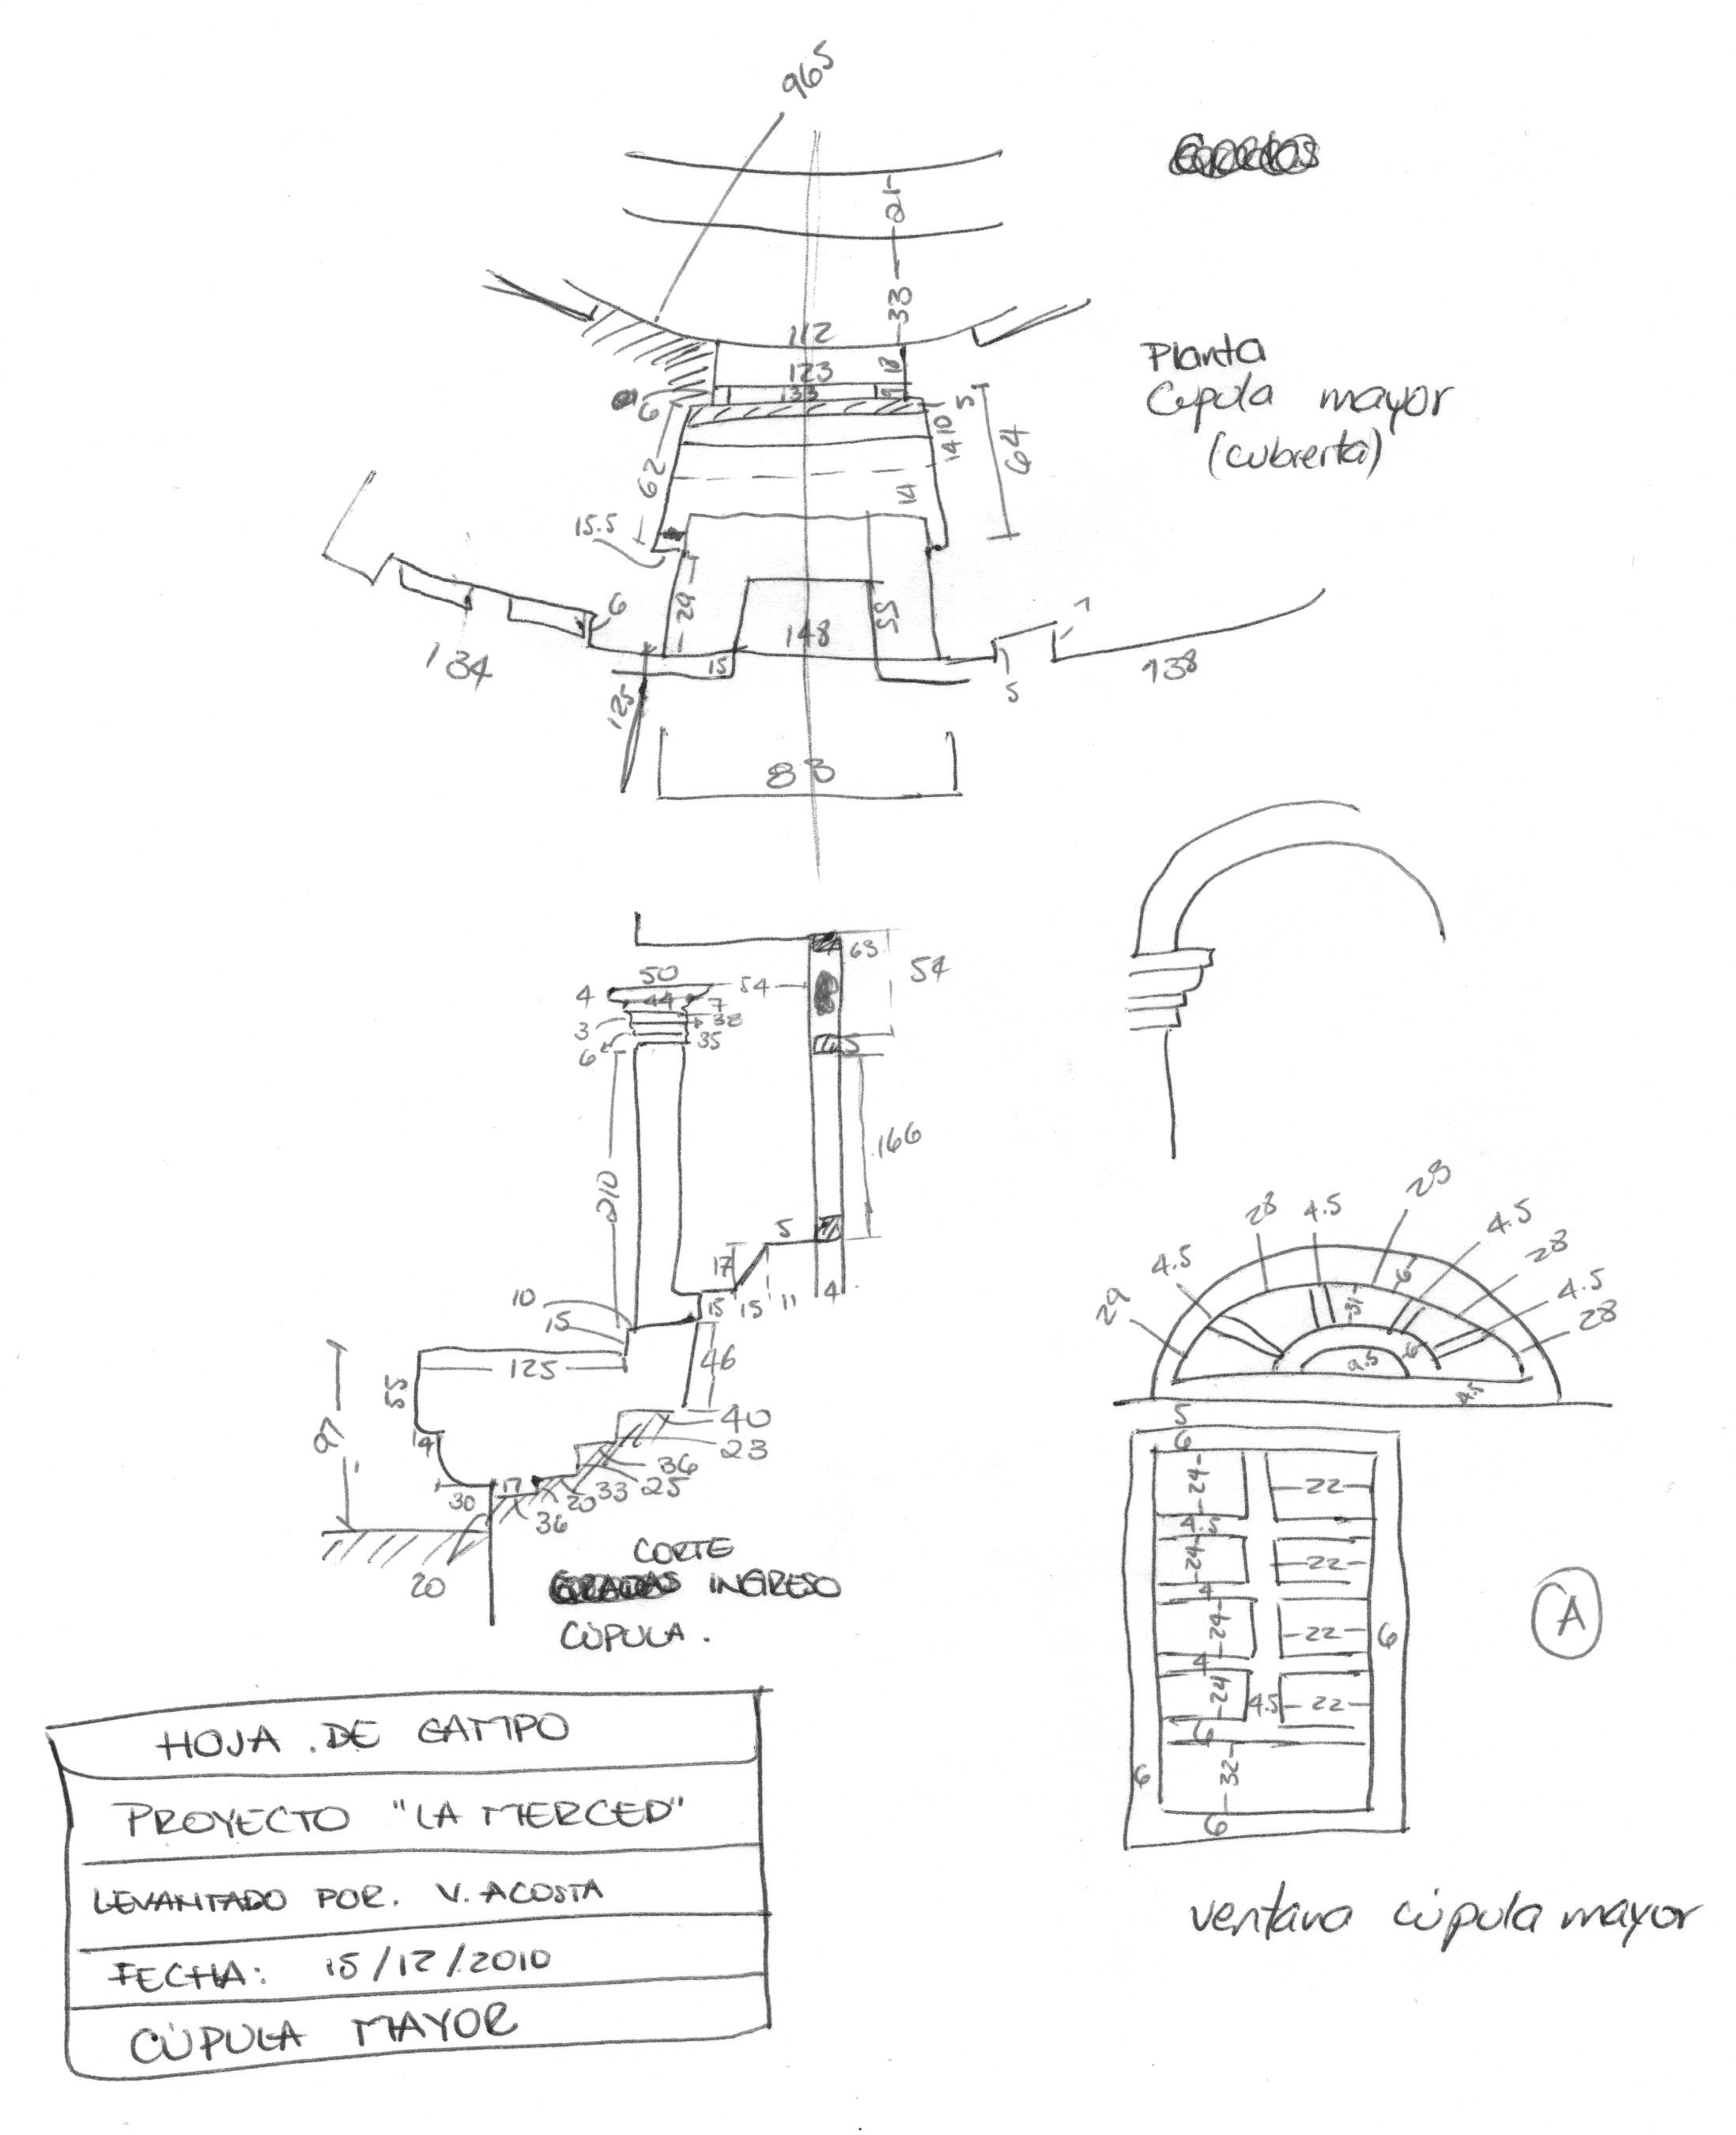 965
21
33
112
123
18
133
9
6
5
10
14
64
62
14
15.5
29
55
148
15
6
134
125
7
5
938
83
Planta
Cúpula mayor
(cubierta)
63
54
50
54
4
44
7
3
38
6
35
5
166
210
5
17
10
15
15
15
11
4
125
46
55
97
14
40
23
36
25
30
17
20
33
36
20
CORTE
INGRESO
CÚPULA.
28
4.5
23
4.5
28
4.5
4.5
29
28
6
31
6
9.5
4.5
5
6
24
22
4.5
24
22
4
24
22
6
4
24
4.5
22
6
6
32
6
A
ventana cúpula mayor
HOJA DE CAMPO
PROYECTO "LA MERCED"
LEVANTADO POR. V. ACOSTA
FECHA: 15/12/2010
CÚPULA MAYOR